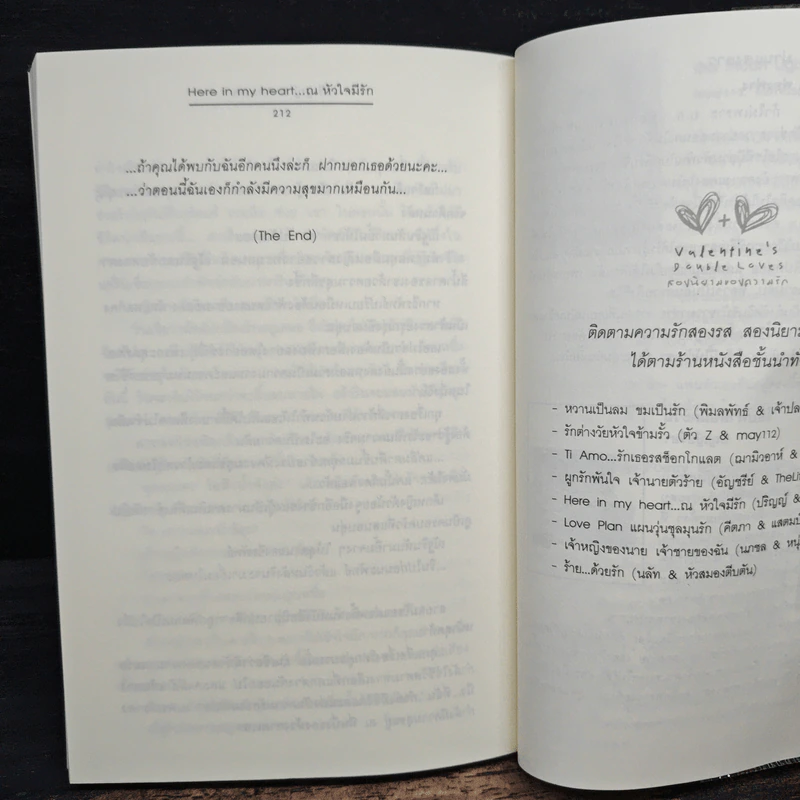 Here in my heart...ณ หัวใจมีรัก
212
...ถ้าคุณได้พบกับฉันอีกคนนึงล่ะก็ ฝากบอกเธอด้วยนะคะ...
...ว่าตอนนี้ฉันเองก็กำลังมีความสุขมากเหมือนกัน...
(The End)
Valentine's
Double Loves
สองนิยามของความรัก
ติดตามความรักสองรส สองนิยาม
ได้ตามร้านหนังสือชั้นนำ
- หวานเป็นลม ขมเป็นรัก (พิมลพัทธ์ &
- รักต่างวัยหัวใจข้ามรั้ว (ตัว Z & may112)
- Ti Amo...รักเธอรสช็อกโกแลต (ฌามิวอาห์ &
- ผูกรักพันใจ เจ้านายตัวร้าย (อัญชรีย์ &
- Here in my heart...ณ หัวใจมีรัก (ปริญญ์ &
- Love Plan แผนวุ่นชุลมุนรัก (คีตภา &
- เจ้าหญิงของนาย เจ้าชายของฉัน (นภชล &
- ร้าย...ด้วยรัก (นลัท & หัวสมองตีบตัน)